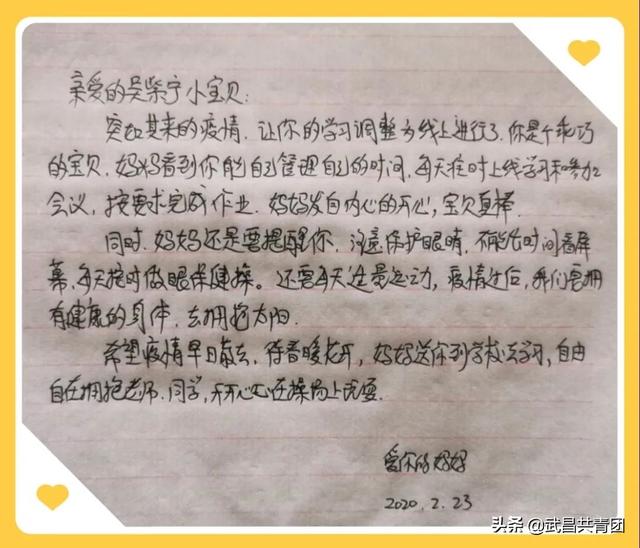 亲爱的吴紫宁小宝贝:
突如其来的疫情,让你的学习调整为线上进行了.你是个乖巧
的宝贝,妈妈看到你能自己管理自己的时间,每天准时上线学习和参加
会议,按要求完成作业.妈妈发自内心的开心,宝贝真棒.
同时,妈妈还是要提醒你,注意保护眼睛,不能长时间看屏
幕,每天按时做眼保健操。还要每天适量运动,疫情过后,我们要拥
有健康的身体,去拥抱太阳.
希望疫情早日离去,待春暖花开,妈妈送你到学校去学习,自由
自在拥抱老师、同学,开开心心在操场上玩耍.
爱你的妈妈
2020.2.23
头条 @武昌共青团